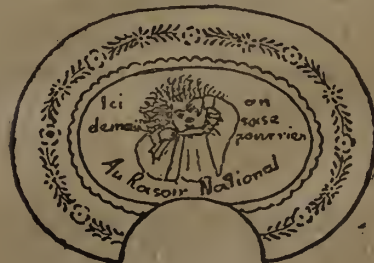 Ici on
demain rase
pour rien
Au Rasoir National